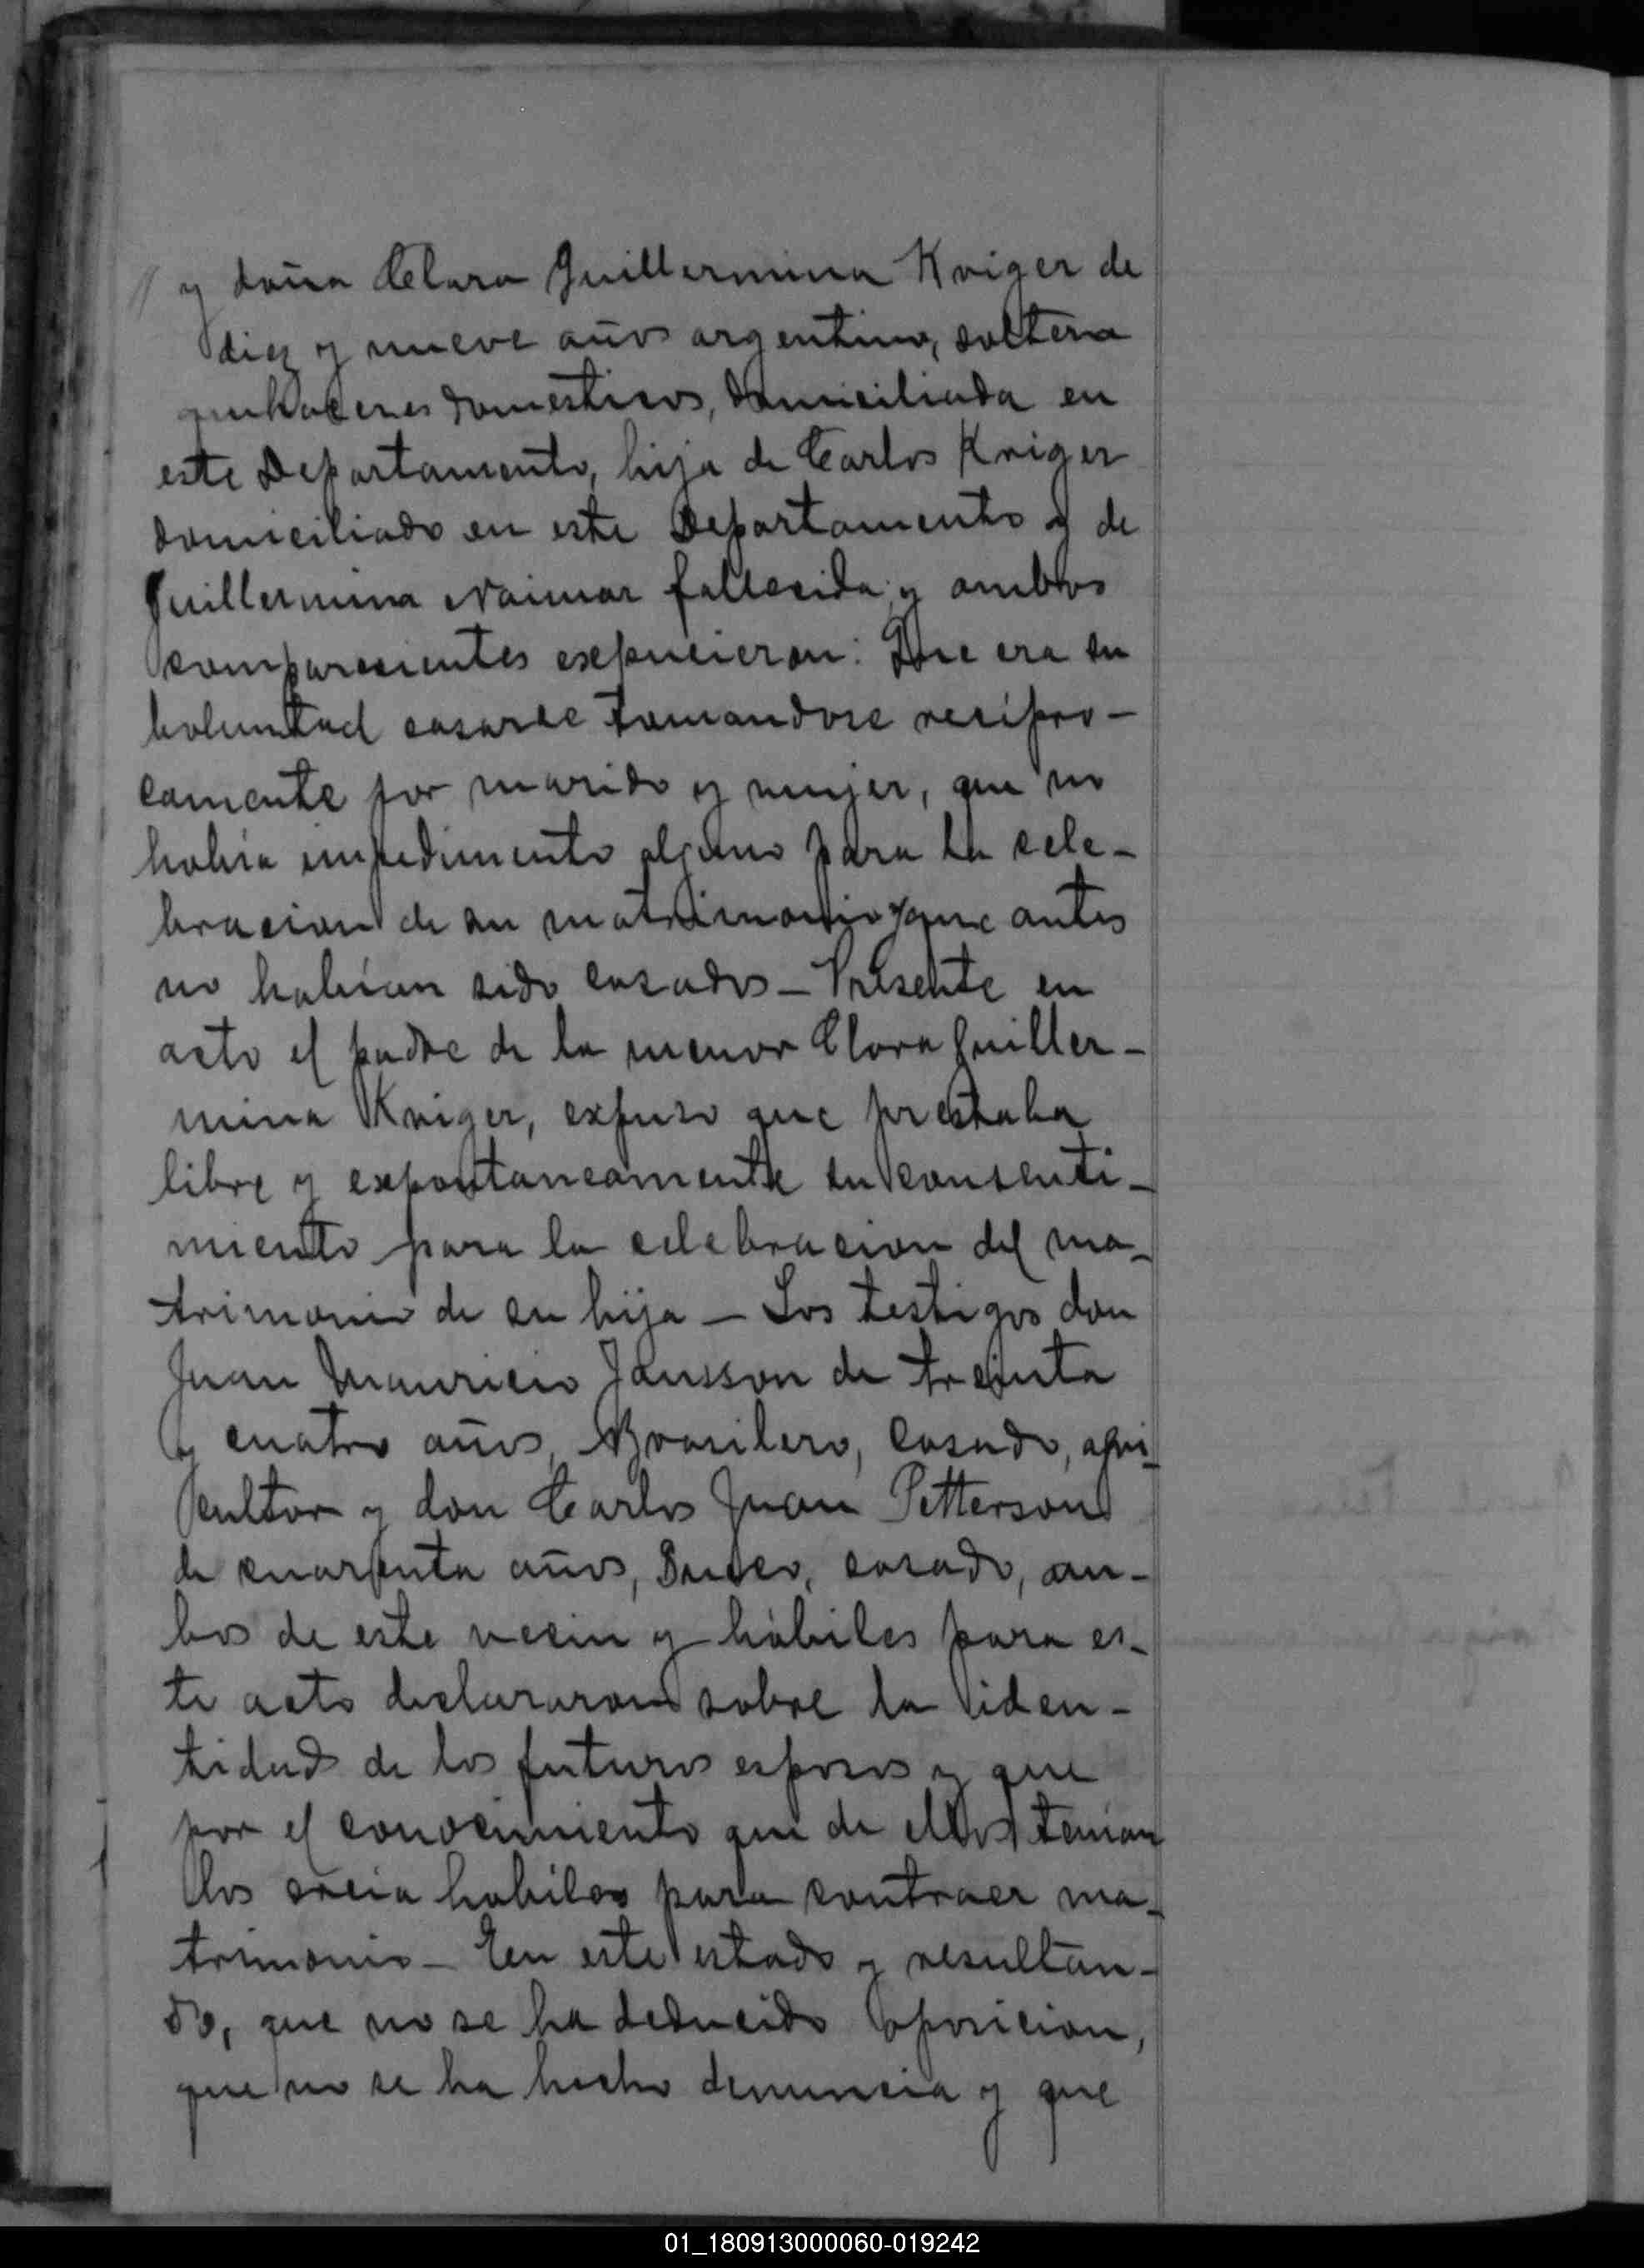 // y doña Clara Guillermina Kriger de
diez y nueve años argentina, soltera
quehaceres domesticos, domiciliada en
este Departamento, hija de Carlos Kriger
domiciliado en este Departamento y de
Guillermina Naimar fallecida; y ambos
comparecientes expucieron: Que era su
boluntad casarse tomandose recipro-
camente por marido y mujer, que no
habia impedimento alguno para la cele-
bracion de su matrimonio y que antes
no habian sido casados - Presente en
acto el padre de la menor Clara Guiller-
mina Kriger, expuso que prestaba
libre y expontaneamente su consenti-
miento para la celebracion del ma-
trimonio de su hija - Los testigos don
Juan Mauricio Jansson de treinta
y cuatro años, Brasilero, casado, agri-
cultor y don Carlos Juan Petterson
de cuarenta años, Sueco, casado, am-
bos de este vecin y hábiles para es-
te acto declararon sobre la iden-
tidad de los futuros esposos y que
por el conocimiento que de ellos tenian
los creia habiles para contraer ma-
trimonio - En este estado y resultan-
do, que no se ha deducido oposicion,
que no se ha hecho denuncia y que
01_180913000060-019242